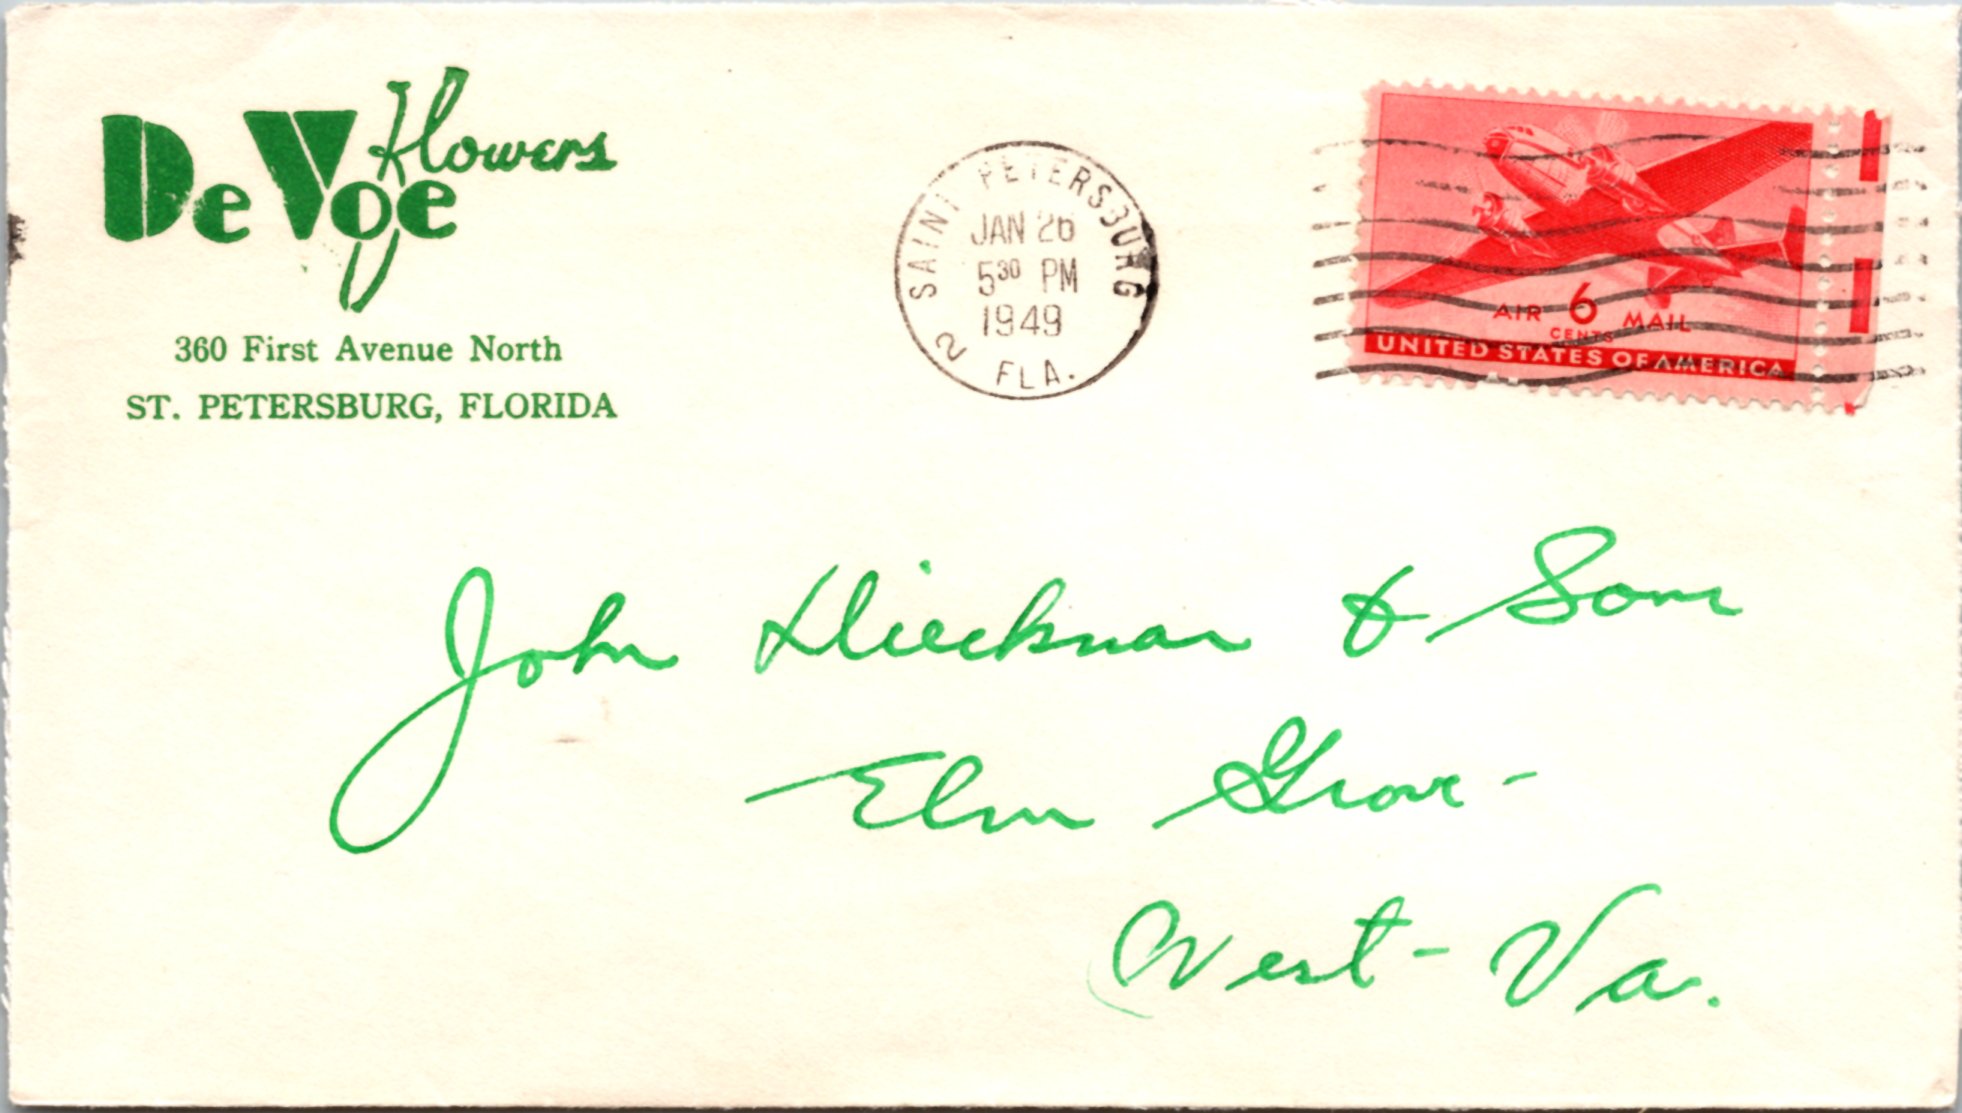 De Voe Flowers
360 First Avenue North
ST. PETERSBURG, FLORIDA
SAINT PETERSBURG
JAN 26
5 30 PM
1949
2
FLA.
AIR 6 MAIL
CENTS
UNITED STATES OF AMERICA
John Dieckman & Sons
Elm Grove -
West - Va.